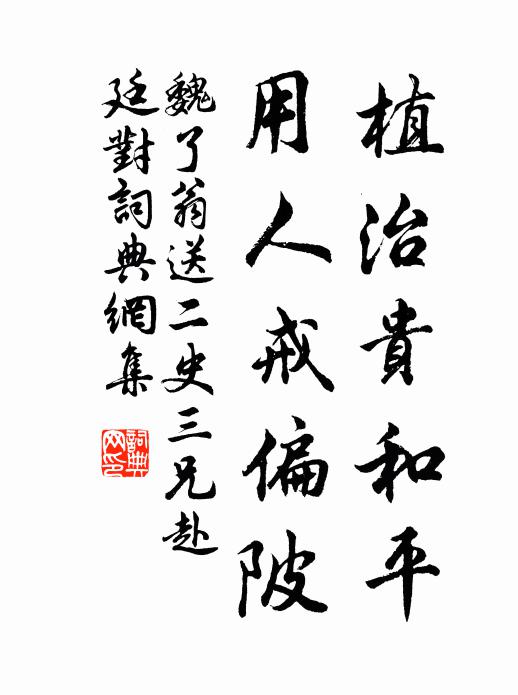 植治貴和平
用人戒偏陂
魏了翁送二史三兄赴
廷對詞典網集
詞典網印